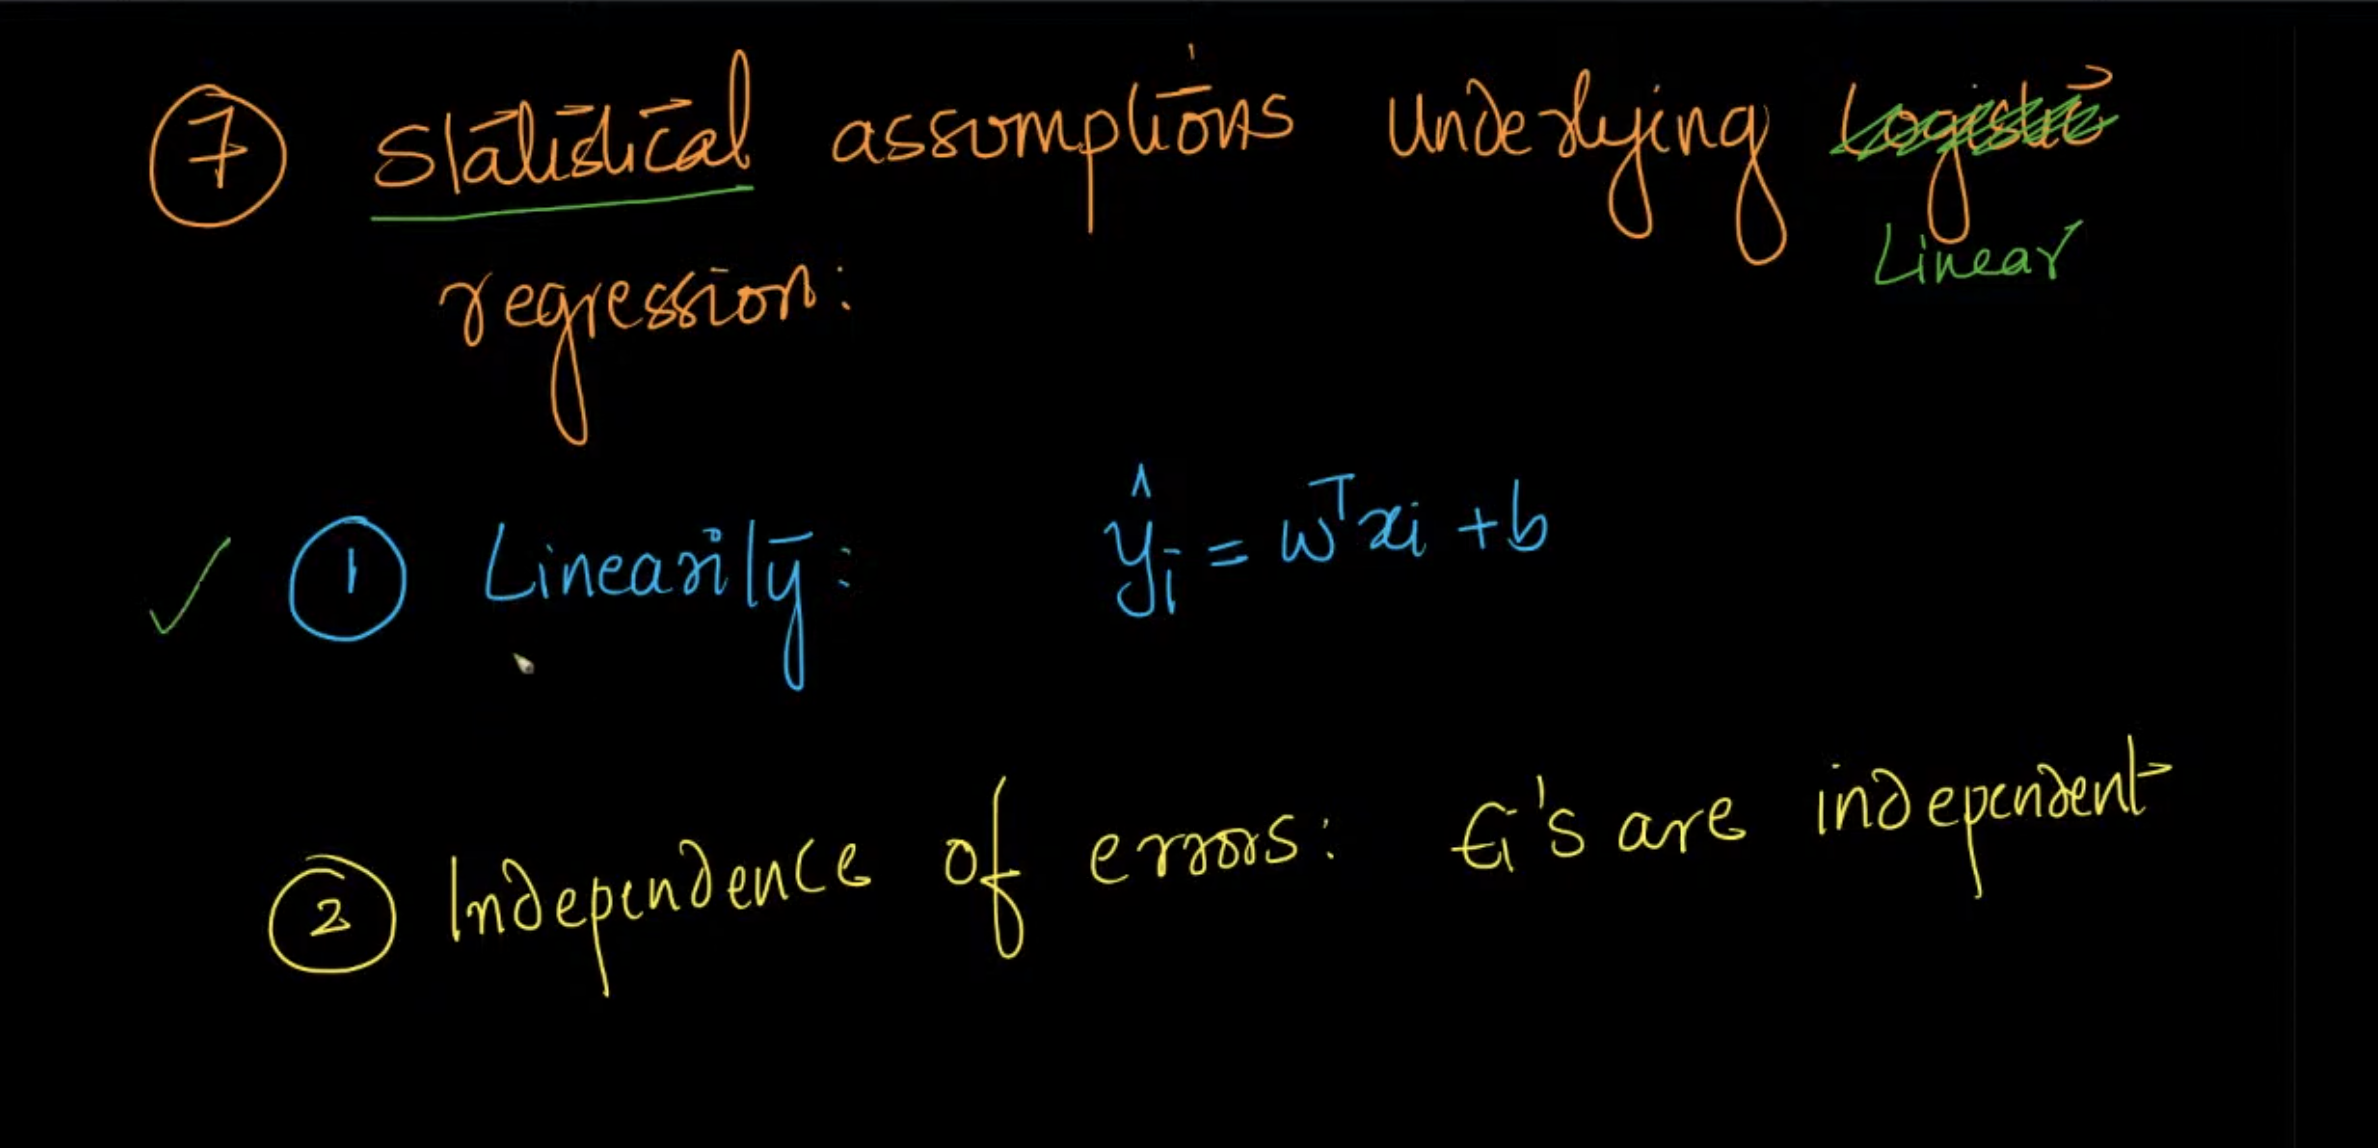 7 Statistical assumptions underlying Logistic
Linear
regression:
1 Linearity: ŷᵢ = wᵀxᵢ + b
2 Independence of errors: ϵᵢ's are independent